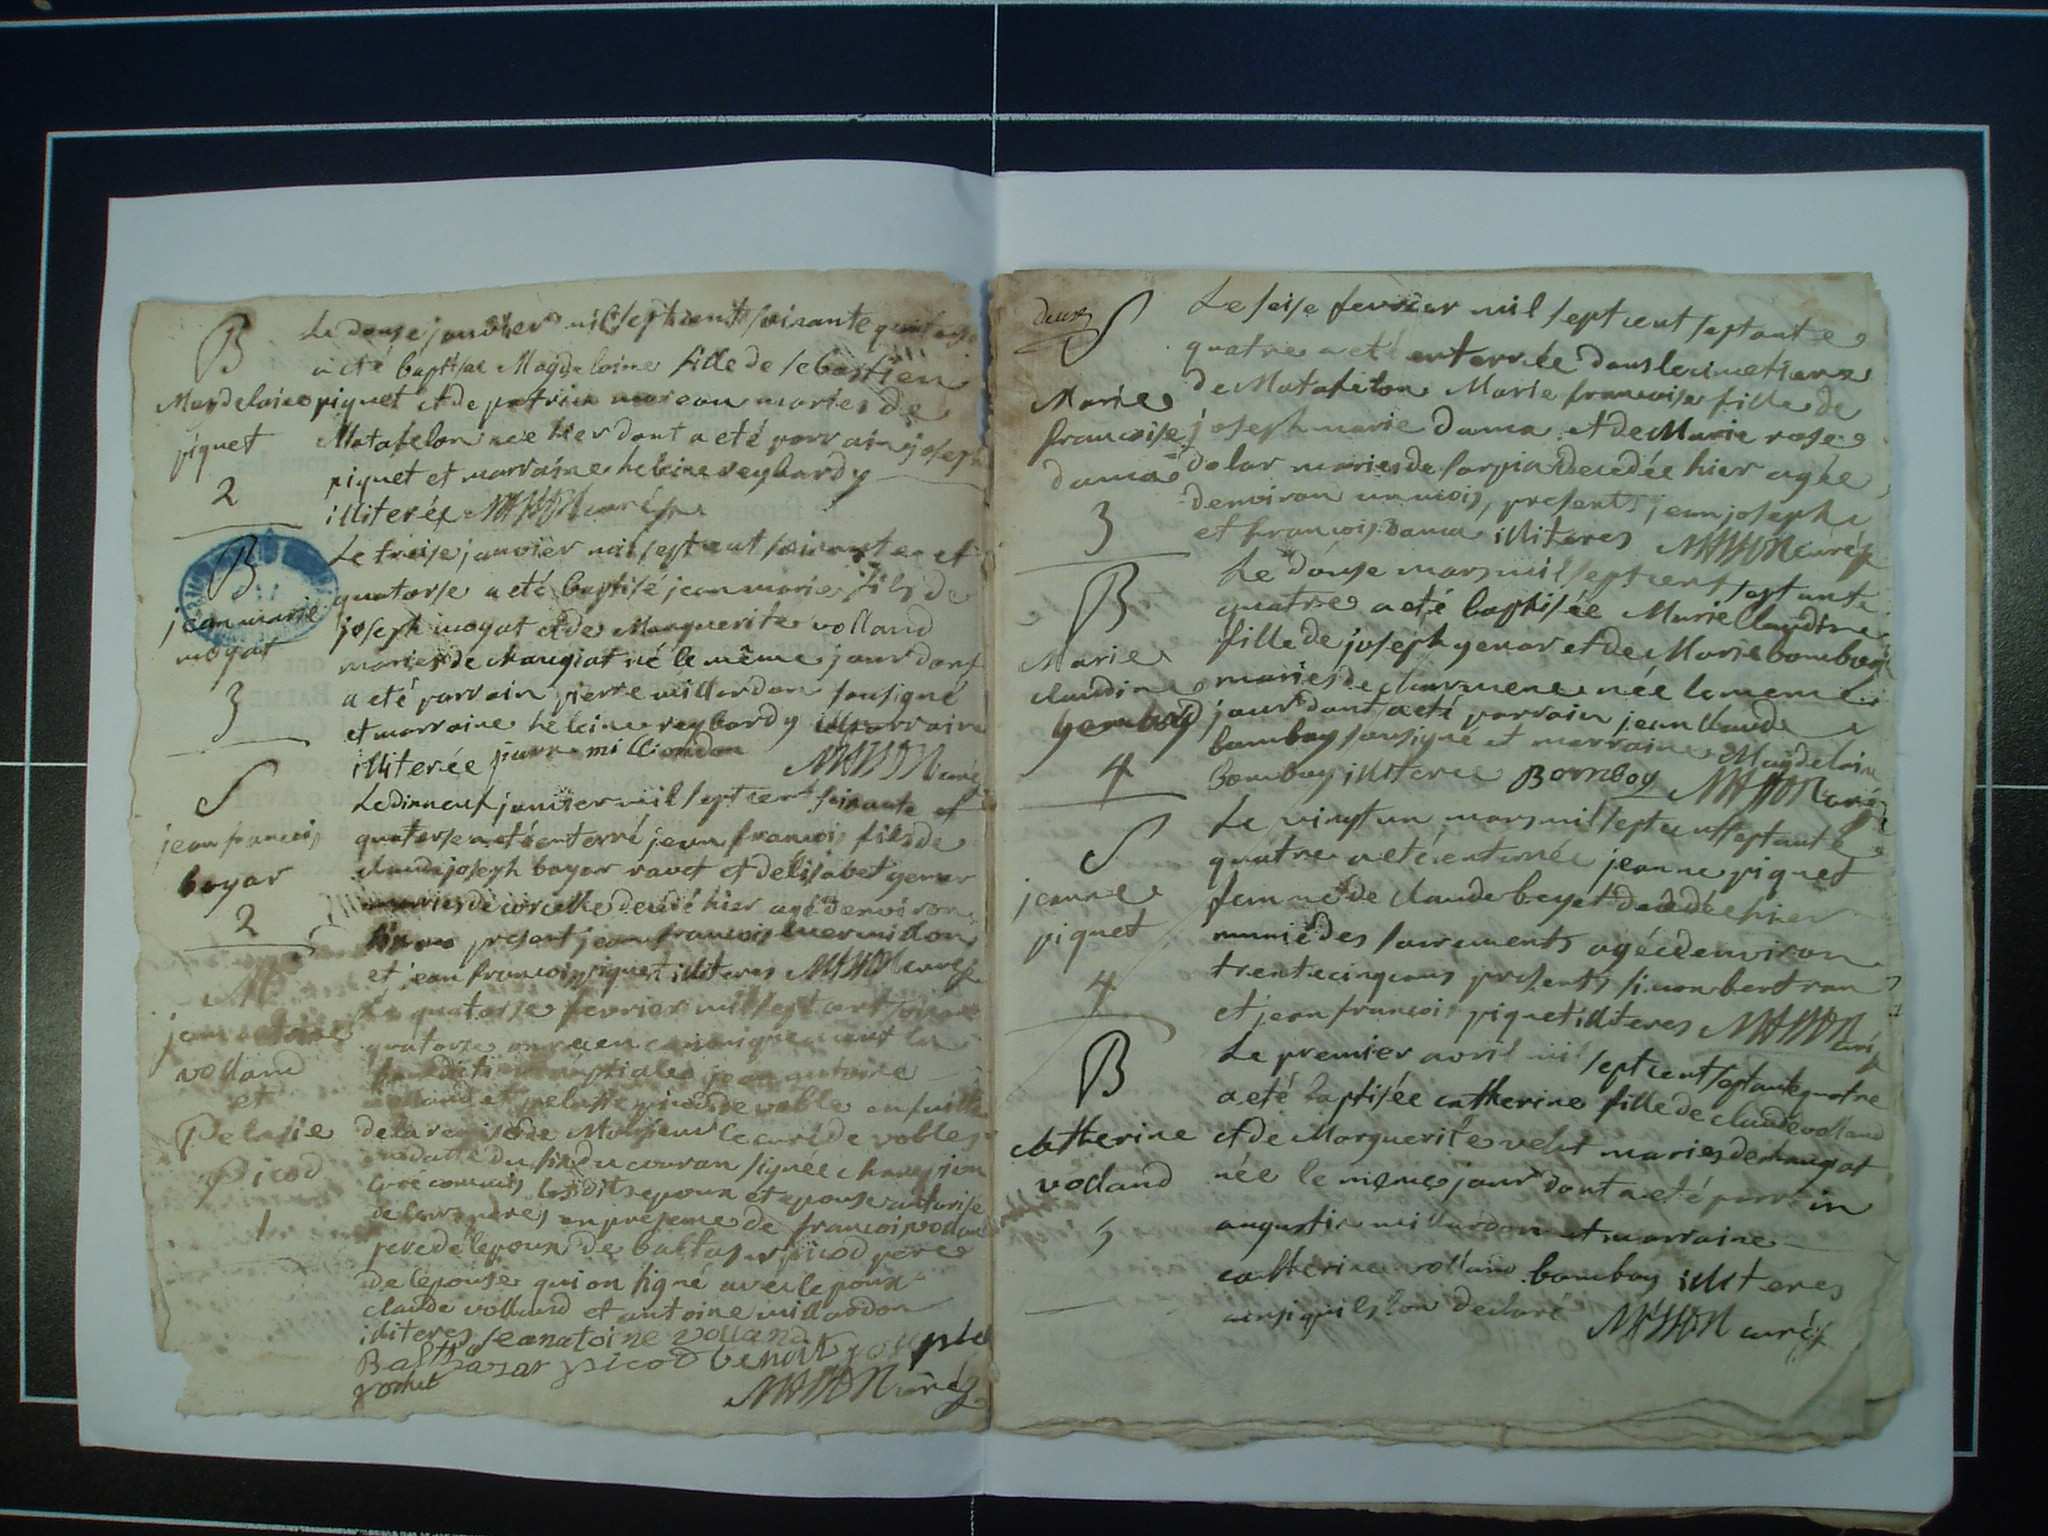 B
Magdelaine
piquet
2
Le douse janvier mil sept cent soisante quatorse
a eté baptisée Magdeloine fille de sebastien
piquet et de patrisie moiron mariés de
Matafelon née hier dont a eté parrain joseph
piquet et marraine heleine reybardy
illiterés MASSON curé
B
jean marie
moyat
3
Le treise janvier mil sept cent soisante et
quatorse a eté baptisé jean marie fils de
joseph moyat et de Marguerite volland
mariés de changiat né le même jour dont
a eté parrain pierre millardon sousigné
et marraine heleine reybardy
illiterée pierre milliondon MASSON curé
S
jean francois
boyar
2
Le dinneuf janvier mil sept cent soisante et
quatorse a eté enterré jean francois fils de
claude joseph boyar ravet et delisabet genor
mariés de corcelle decedé hier agé denviron
present jean francois
et jean francois piquet illiteres MASSON curé
M
jean antoine
volland
et
Pelasie
Picod
1
Le quatorse fevrier mil sept cent soisante
quatorse on recu canoniquement la
benediction nuptiale jean antoine
volland et pelasie picod de voble ensuitte
de la remise de Monsieur le curé de vobles
en datte du six du couran signée
curé commis lesdits epoux et epouse autorisé
de leurs peres en presence de francois volland
pere de lepoux de baltasar picod pere
de lepouse qui on signé avec lepoux
claude volland et antoine millardon
illiteres jeanatoine volland
Balthazar picod benoit
MASSON curé
deux
S
Marie
francoise
dama
3
Le seise fevrier mil sept cent septante
quatre a eté enterrée dans le cimetiere
de Matafelon Marie francoise fille de
joseph marie dama et de Marie rose
dolar mariés de sarpia decedée hier agée
denviron un mois, presents jean joseph
et francois dama illiteres MASSON curé
B
Marie
claudine
4
Le douse mars mil sept cent septante
quatre a eté baptisée Marie claudine
fille de joseph genor et de Marie bomboy
mariés de née le meme
jour dont a eté parrain jean claude
bomboy sousigné et marraine Magdeloine
bomboy illiteree Bomboy MASSON curé
S
jeanne
piquet
4
Le vingt un mars mil sept cent septante
quatre a eté enterrée jeanne piquet
femme de claude beyet decedée hier
munie des sacrements agée denviron
trente cinq ans presents simon bertran
et jean francois piquet illiteres MASSON curé
B
catherine
volland
5
Le premier avril mil sept cent septante quatre
a eté baptisée catherine fille de claude volland
et de Marguerite velut mariés de changiat
née le meme jour dont a eté parrain
augustin millardon et marraine
catherine volland bomboy illiteres
ainsi quils lon declaré MASSON curé